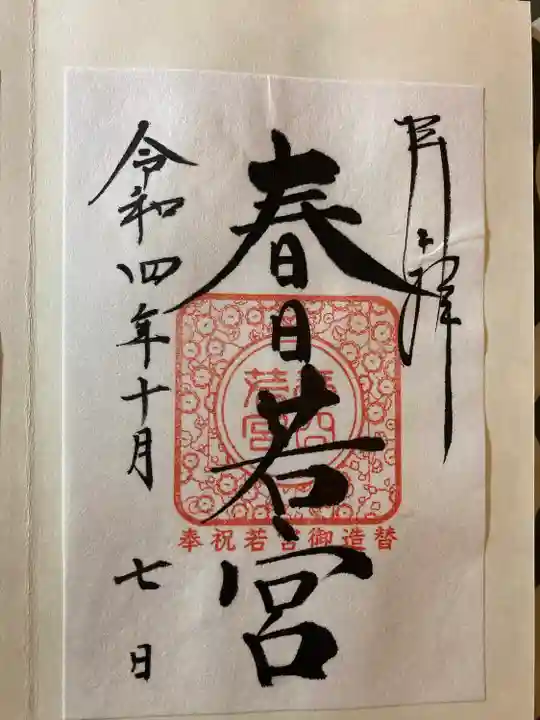 春日若宮
春日
若宮
奉祝若宮御造替
令和四年十月七日